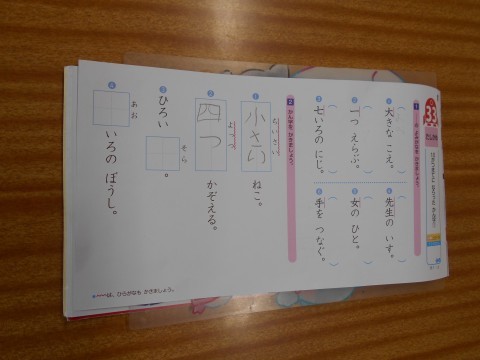 33
1
よみがなを かきましょう。
① 大きな こえ。
② 一つ えらぶ。
③ 七いろの にじ。
④ 先生の いす。
⑤ 女の ひと。
⑥ 手を つなぐ。
2 かん字を かきましょう。
① 小さい ねこ。
ちいさい
② 四つ かぞえる。
よっつ
③ ひろい 。
そら
④ いろの ぼうし。
あお
は、ひらがなも かきましょう。